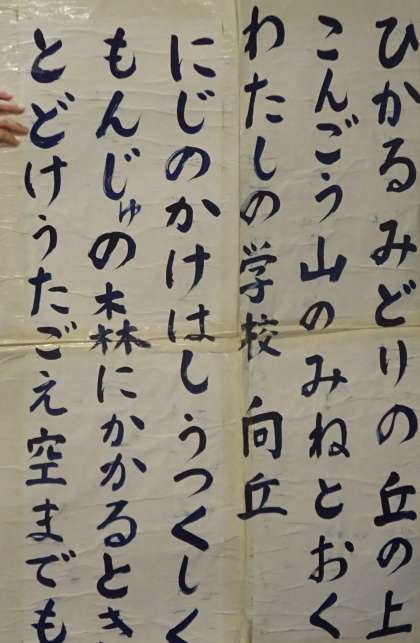 ひかるみどりの丘の上
こんごう山のみねとおく
わたしの学校 向丘
にじのかけはしうつくしく
もんじゅの森にかかるとき
とどけうたごえ空までも